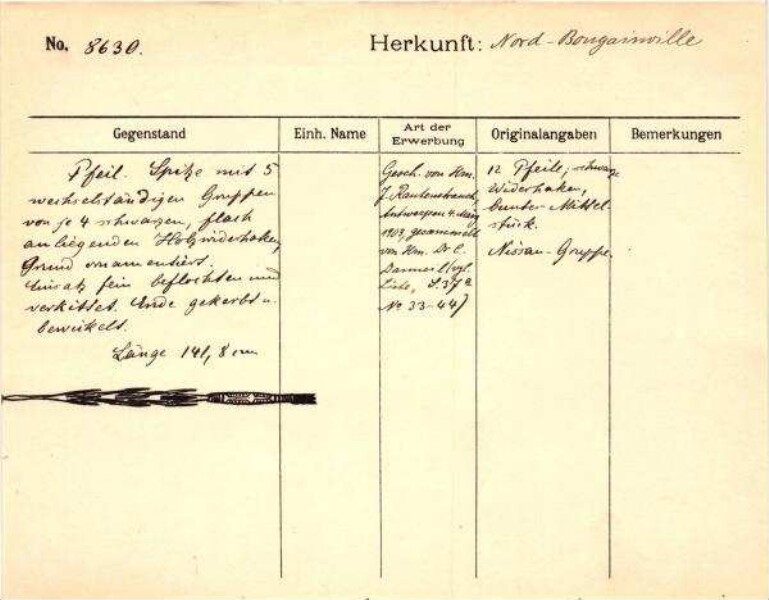 No. 8630.
Herkunft: Nord-Bougainville
Gegenstand
Einh. Name
Art der Erwerbung
Originalangaben
Bemerkungen
Pfeil. Spitze mit 5
wechselständigen Gruppen
von je 4 schwarzen, flach
anliegenden Holzwiderhaken,
Grund ornamentiert.
Einsatz fein beflochten und
verkittet. Ende gekerbt u.
bewickelt.
Länge 141,8 cm
Gesch. von Hrn.
J. Rautenstrauch,
Antwerpen 4. März
1903, gesammelt
von Hrn. Dr C.
(vgl.
Liste, S. 37a
No 33-44)
12 Pfeile, schwarze
Widerhaken,
bunter Mittel-
stück.
Nissan-Gruppe.